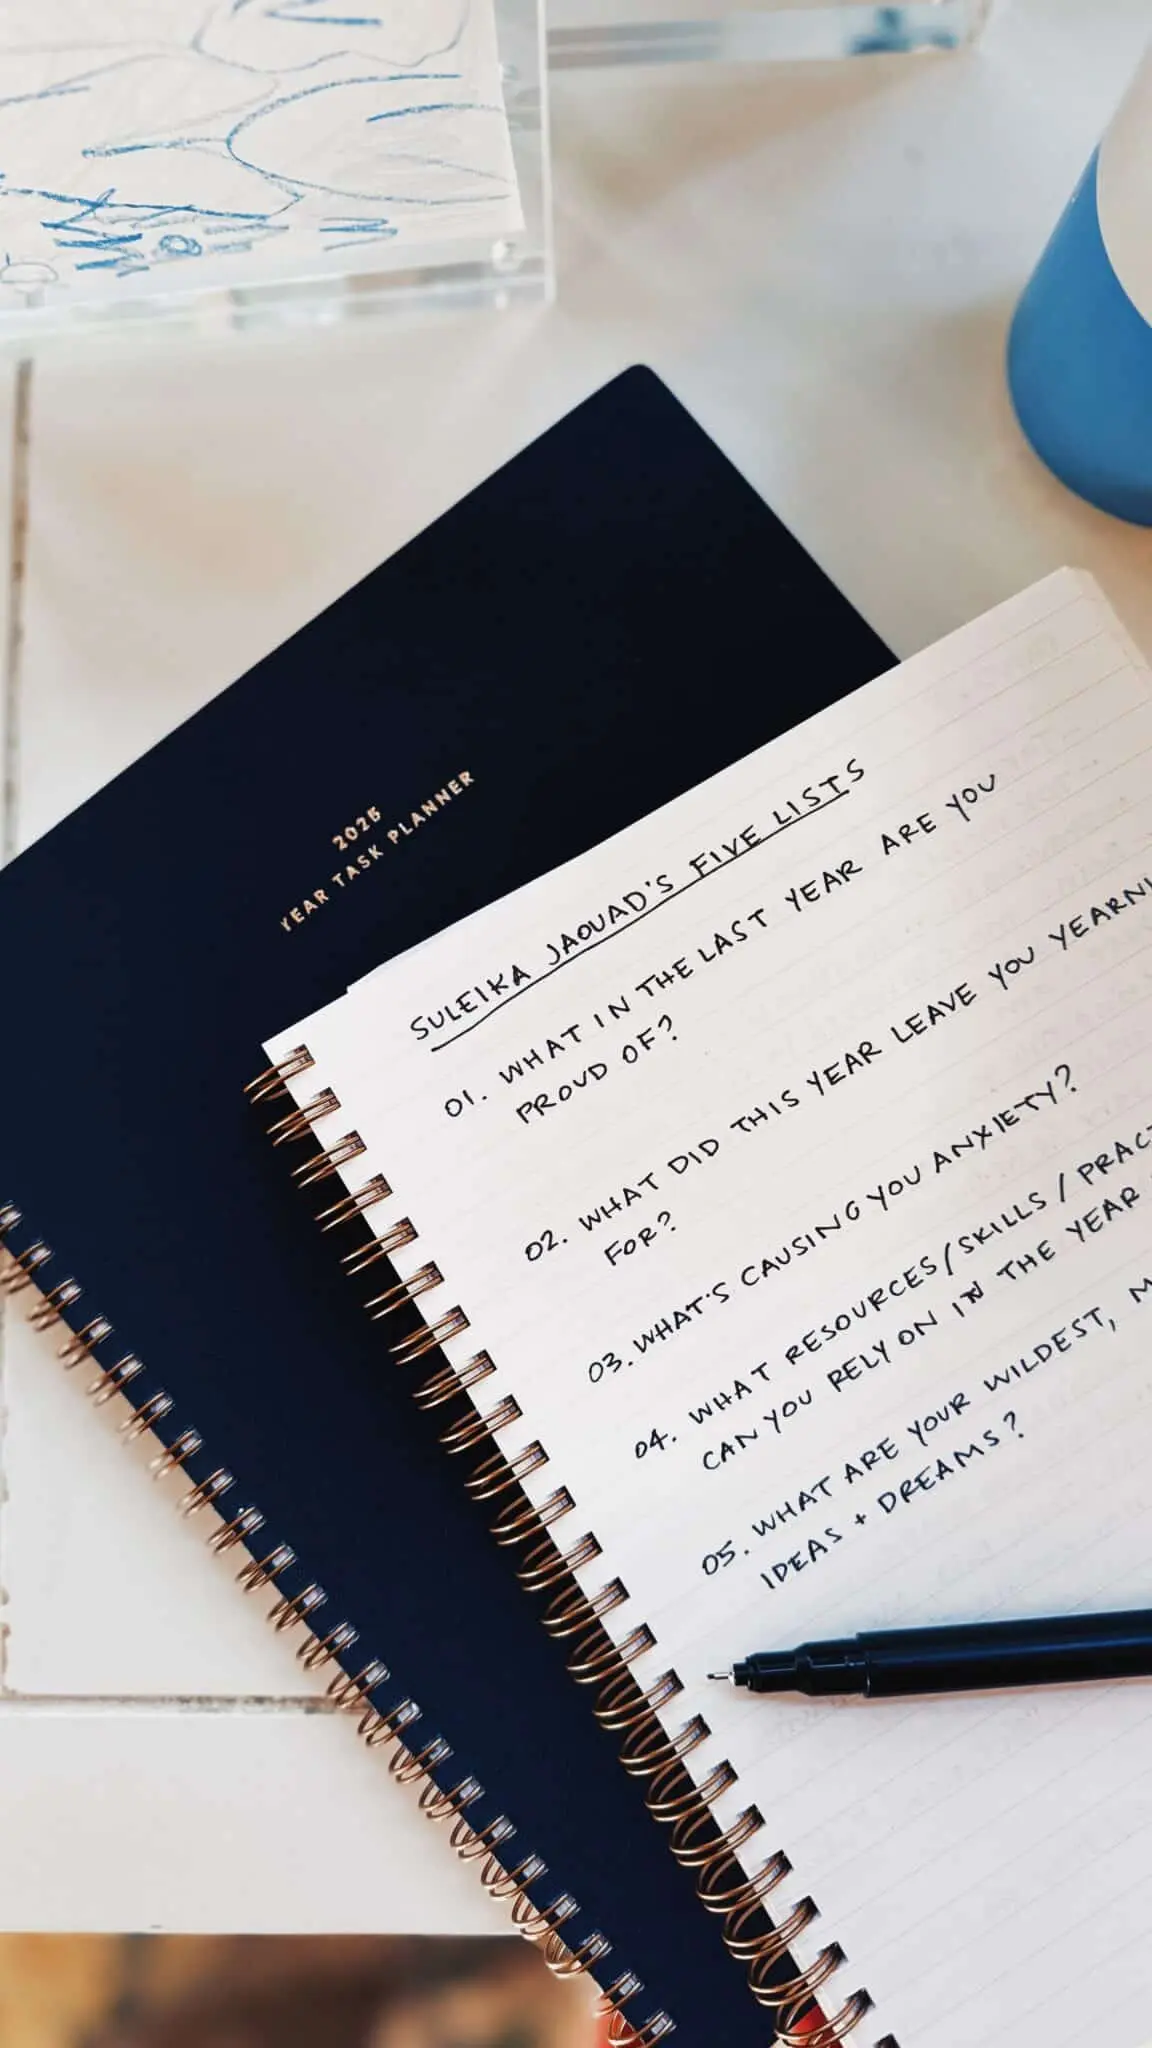 2025
YEAR TASK PLANNER
SULEIKA JAOUAD'S FIVE LISTS
01. WHAT IN THE LAST YEAR ARE YOU
PROUD OF?
02. WHAT DID THIS YEAR LEAVE YOU YEARNI
FOR?
03. WHAT'S CAUSING YOU ANXIETY?
04. WHAT RESOURCES/SKILLS/PRACT
CAN YOU RELY ON IN THE YEAR
05. WHAT ARE YOUR WILDEST, M
IDEAS + DREAMS?